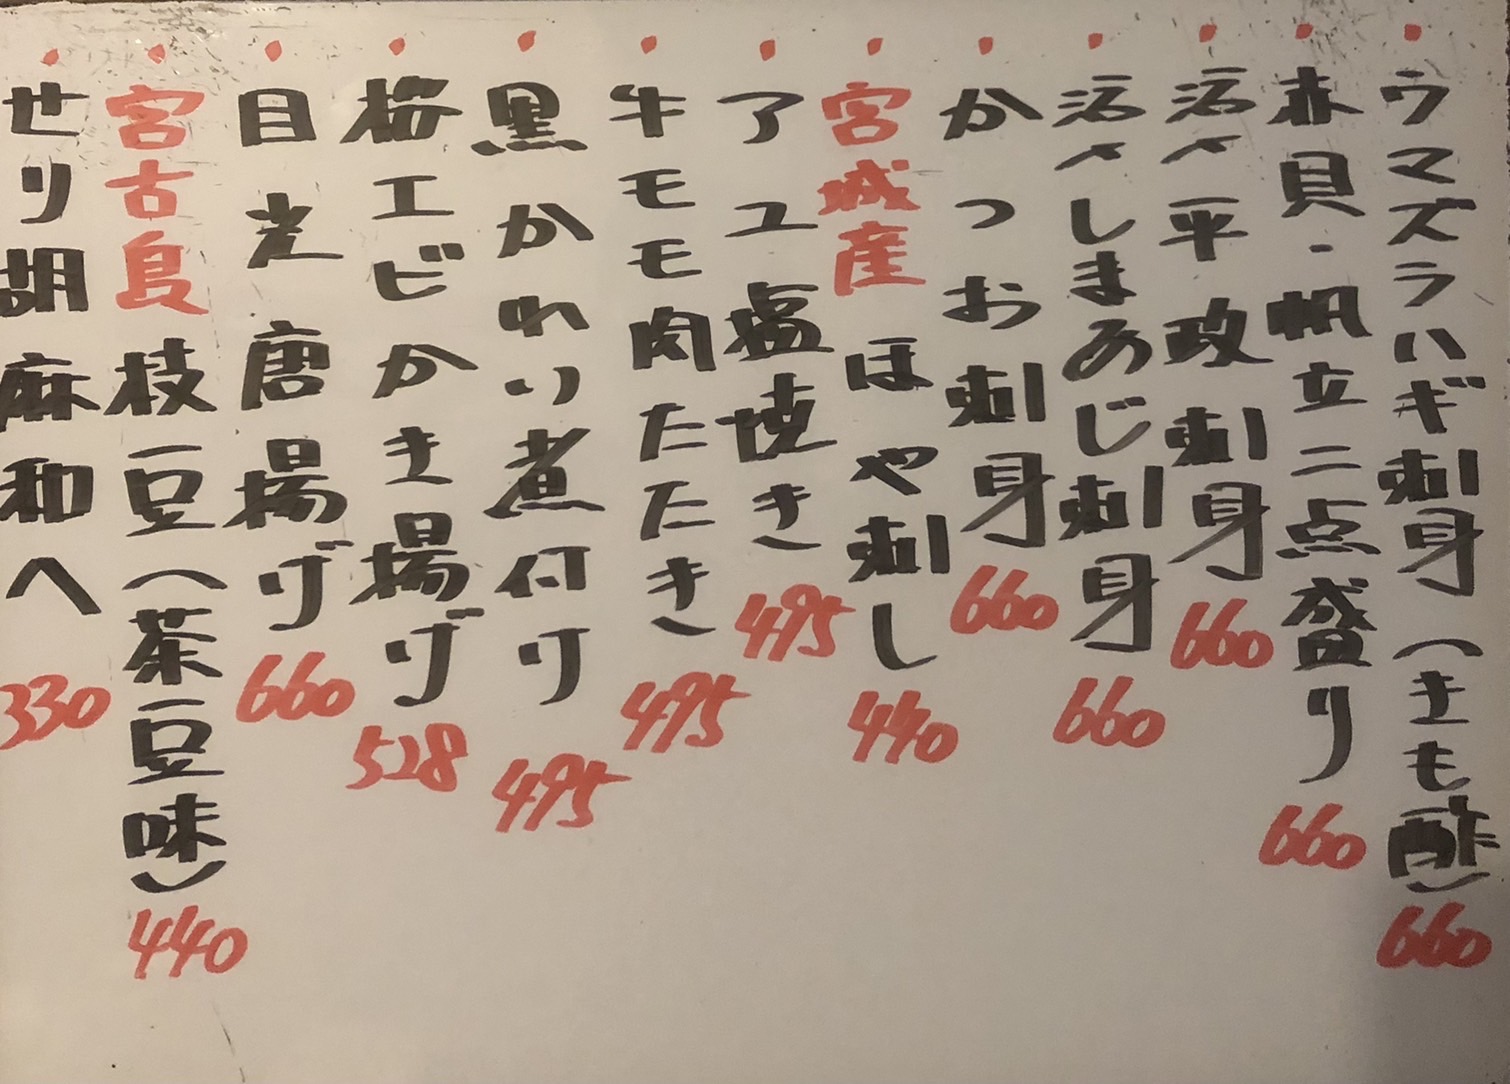 ウマズラハギ刺身(きも酢)660
赤貝・帆立二点盛り660
活〆平政刺身660
活〆しまあじ刺身660
かつお刺身660
宮城産ほや刺し440
アユ塩焼き495
牛モモ肉たたき495
黒かれい煮付け495
桜エビかき揚げ528
目光唐揚げ660
宮古島枝豆(茶豆味)440
せり胡麻和へ330